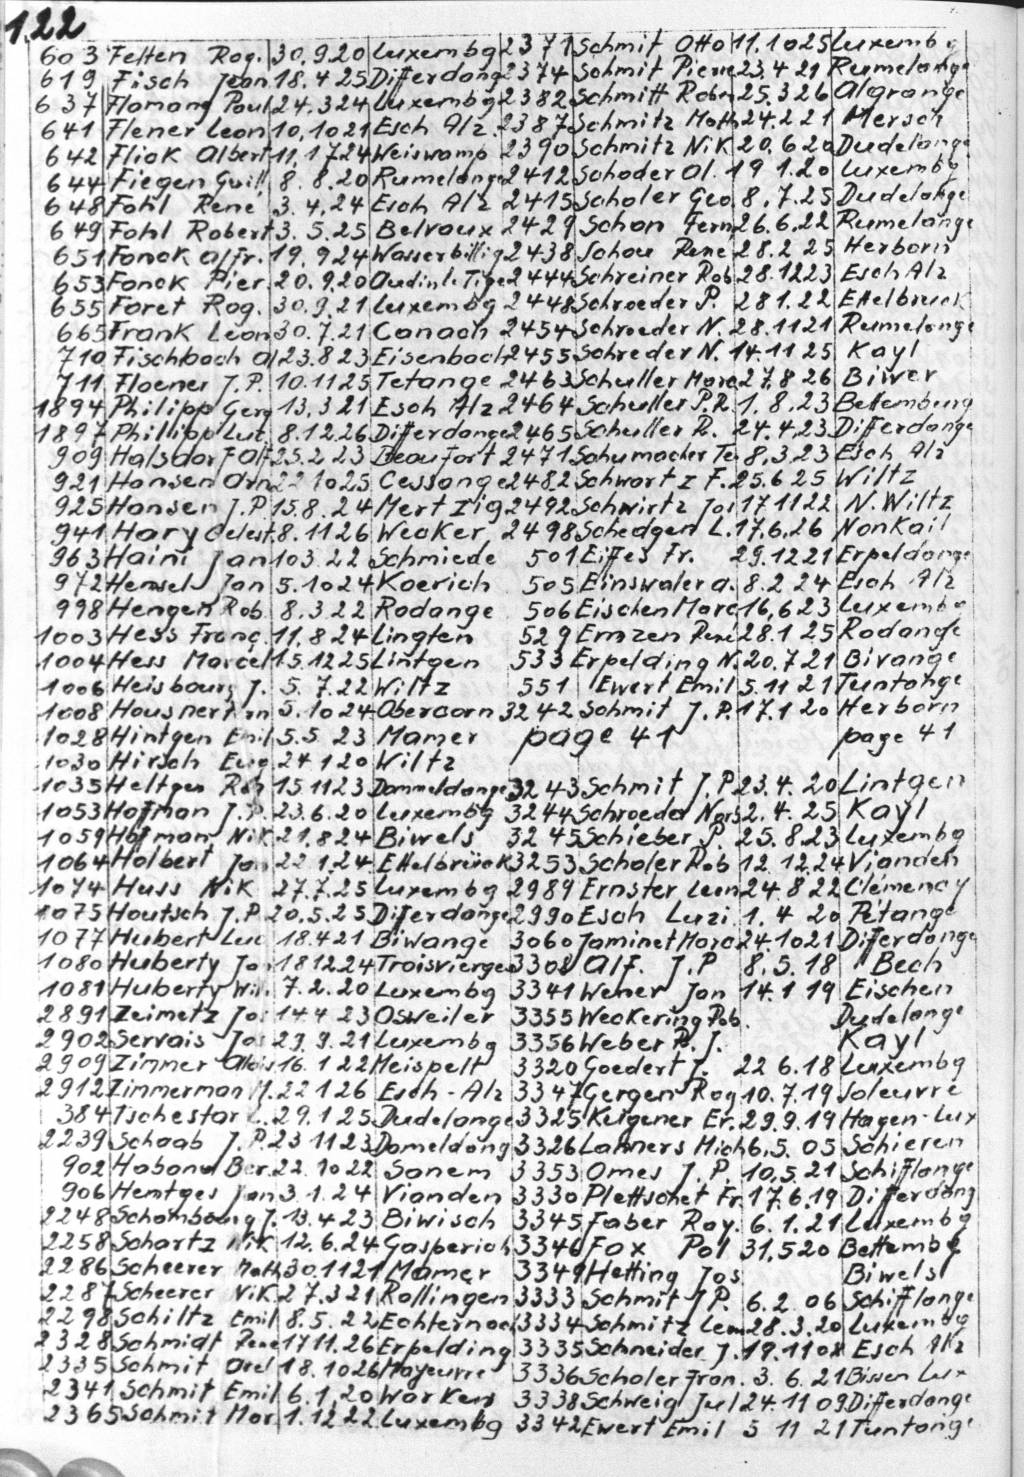 122
603 Felten Rog. 30.9.20 Luxembg 2371 Schmit Otto 11.10 25 Luxembg
619 Fisch Jean 18.4 25 Differdang 2374 Schmit Pierre 23.4 21 Rumelange
637 Flamang Paul 24.3 24 Luxembg 2382 Schmitt Robn 25.3 26 Algrange
641 Flener Leon 10.10 21 Esch Alz 2387 Schmitz Math 24.2 21 Mersch
642 Fliok Albert 11.1 7 24 Weiswamp 2390 Schmitz Nik 20.6 20 Dudelange
644 Fiegen Guill. 8.8.20 Rumelange 2412 Schoder Al. 19 1.20 Luxembg
648 Fohl René 3.4.24 Esch Alz 2415 Scholer Geo. 8.7.25 Dudelange
649 Fohl Robert 3.5.25 Belvaux 2429 Schon Fern. 26.6.22 Rumelange
651 Fonck Alfr. 19.9 24 Wasserbillig 2438 Schou René 28.2 25 Herborn
653 Fonck Pier. 20.9.20 2444 Schreiner Rob 28.12 23 Esch Alz
655 Foret Rog. 30.9.21 Luxembg 2448 Schroeder P. 28 1.22 Ettelbruck
665 Frank Leon 30.7.21 Canach 2454 Schroeder N. 28.11 21 Rumelange
710 Fischbach Al 23.8 23 Eisenbach 2455 Schreder N. 14.11 25 Kayl
711 Floener J.P. 10.11 25 Tetange 2463 Schuller Marc 27.8 26 Biwer
1894 Philipp Gerg 13.3 21 Esch Alz 2464 Schuller P.R. 1.8.23 Bettemburg
1897 Phillipp Luc. 8.12.26 Differdange 2465 Schuller R. 24.4.23 Differdange
909 Halsdorf Alf 25.2 23 Beaufort 2471 Schumacher Te 8.3.23 Esch Alz
921 Hansen Arn 22 10 25 Cessange 2482 Schwartz F. 25.6 25 Wiltz
925 Hansen J.P 15.8.24 Mertzig 2492 Schwirtz Jos 17 11 22 N.Wiltz
941 Hary Celest. 8.11 26 Wecker 2498 Schedgen L. 17.6.26 Nonkail
963 Haini Jan 10 3.22 Schmiede 501 Eiffes Fr. 29.12.21 Erpeldange
972 Hemsel Jon 5.10 24 Koerich 505 Einswaler a. 8.2.24 Esch Alz
998 Hengen Rob 8.3.22 Rodange 506 Eischen Marc 16.6 23 Luxembg
1003 Hess Franç. 11.8 24 Lingten 529 Emzen René 28.1 25 Rodange
1004 Hess Marcel 15.12 25 Lintgen 533 Erpelding N. 20.7 21 Bivange
1006 Heisbourg J. 5.7.22 Wiltz 551 Ewert Emil 5.11 21 Tuntange
1008 5.10 24 Obercorn 3242 Schmit J.P. 17.1 20 Herborn
1028 Hintgen Emil 5.5 23 Mamer page 41 page 41
1030 Hirsch Eug 24 1 20 Wiltz
1035 Heltgen Rob 15.11 23 Dommeldange 3243 Schmit J.P 23.4.20 Lintgen
1053 Hoffman J.P. 23.6.20 Luxembg 3244 Schroeder 2.4.25 Kayl
1059 Hoffman Nik 21.8 24 Biwels 3245 Schieber P. 25.8.23 Luxembg
1064 Holbert Jon 22 1.24 Ettelbrück 3253 Scholer Rob 12.12.24 Vianden
1074 Huss Nik 27.7.25 Luxembg 2989 Ernster Leon 24.8 22 Clémency
1075 Houtsch J.P 20.5.25 Diferdange 2990 Esch Luzi 1.4 20 Pétange
1077 Hubert Luc 18.4 21 Biwange 3060 Jaminet Marc 24.10 21 Differdange
1080 Huberty Jo 18 12.24 Troisvierges 3308 Alf. J.P 8.5.18 Bech
1081 Huberty Wil. 7.2.20 Luxembg 3341 Wener Jon 14.1 19 Eischen
2891 Zeimetz Jos 14.4 23 Osweiler 3355 Weckering Rob. Dudelange
2902 Servais Jos 29.9.21 Luxembg 3356 Weber P.J. Kayl
2909 Zimmer Alois 16.1 22 Meispelt 3320 Goedert J. 22 6.18 Luxembg
2912 Zimmerman M. 22 1 26 Esch-Alz 3347 Gergen Rog 10.7.19 Soleuvre
384 Tschestar L. 29.1 25 Dudelange 3325 Keigener Er. 29.9.19 Hagen-Lux
2239 Schaab J.P. 23 11 23 Domeldang 3326 Lahners Mich 6.5.05 Schieren
902 Haband Ber. 22.10 22 Sanem 3353 Omes J.P. 10.5 21 Schifflange
906 Hemtges Jan 3.1.24 Vianden 3330 Plettschet Fr. 17.6.19 Differdang
2248 Schombourg J. 13.4 23 Biwisch 3345 Faber Ray. 6.1.21 Luxembg
2258 Schartz Nik 12.6.24 Gasperich 3346 Fox Pol 31.5 20 Bettembg
2286 Scheerer Math 30.11 21 Mamer 3349 Hetting Jos Biwels
2287 Scheerer Nik. 27.3 21 Rollingen 3333 Schmit J.P. 6.2.06 Schifflange
2298 Schiltz Emil 8.5.22 Echternach 3334 Schmitz Lem 28.3.20 Luxembg
2328 Schmidt Rene 17 11.26 Erpelding 3335 Schneider J. 19.11 08 Esch Alz
2335 Schmit Orel 18.10 26 Mayeuvre 3336 Scholer Fran. 3.6.21 Bissen Lux
2341 Schmit Emil 6.1.20 Warken 3338 Schweig Jul 24.11 09 Differdange
2365 Schmit Mar. 1.12.22 Luxembg 3342 Ewert Emil 5 11 21 Tuntange